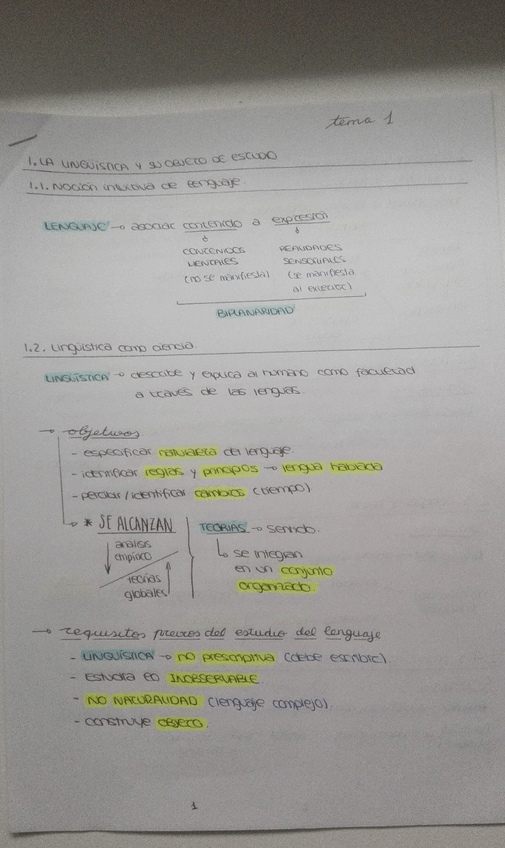 tema 1
1. LA LINGÜÍSTICA Y SU OBJETO DE ESTUDIO
1.1. Noción intuitiva de lenguaje.
LENGUAJE → asociar contenido a expresión
CONTENIDOS REALIDADES
MENTALES SENSORIALES
(no se manifiesta) (se manifiesta
al exterior)
BIPLANARIDAD
1.2. Lingüística como ciencia.
LINGÜÍSTICA → describe y explica al humano como facultad
a través de las lenguas.
→ objetivos
- especificar naturaleza del lenguaje.
- identificar reglas y principios → lengua hablada
- percibir/identificar cambios (tiempo)
* SE ALCANZAN TEORÍAS → sentido.
análisis
empírico
↳ se integran
en un conjunto
organizado.
teorías
globales
→ requisitos previos del estudio del lenguaje
- LINGÜÍSTICA → no prescriptiva (debe escribir).
- Estudia lo INOBSERVABLE.
- NO NATURALIDAD (lenguaje complejo).
- construye objeto.
1